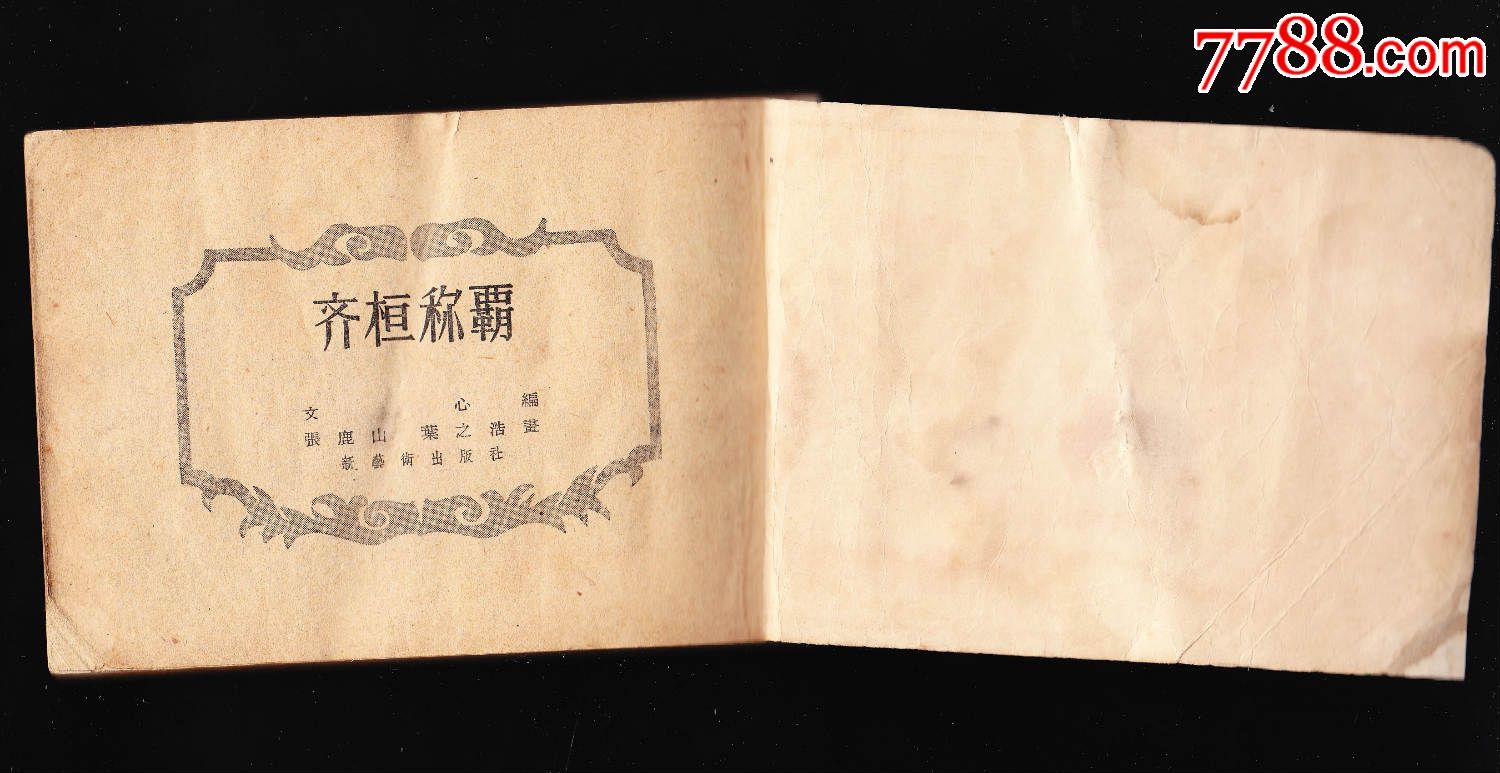 7788.com
齐桓称覇
文心編
張鹿山 葉之浩畫
新藝術出版社